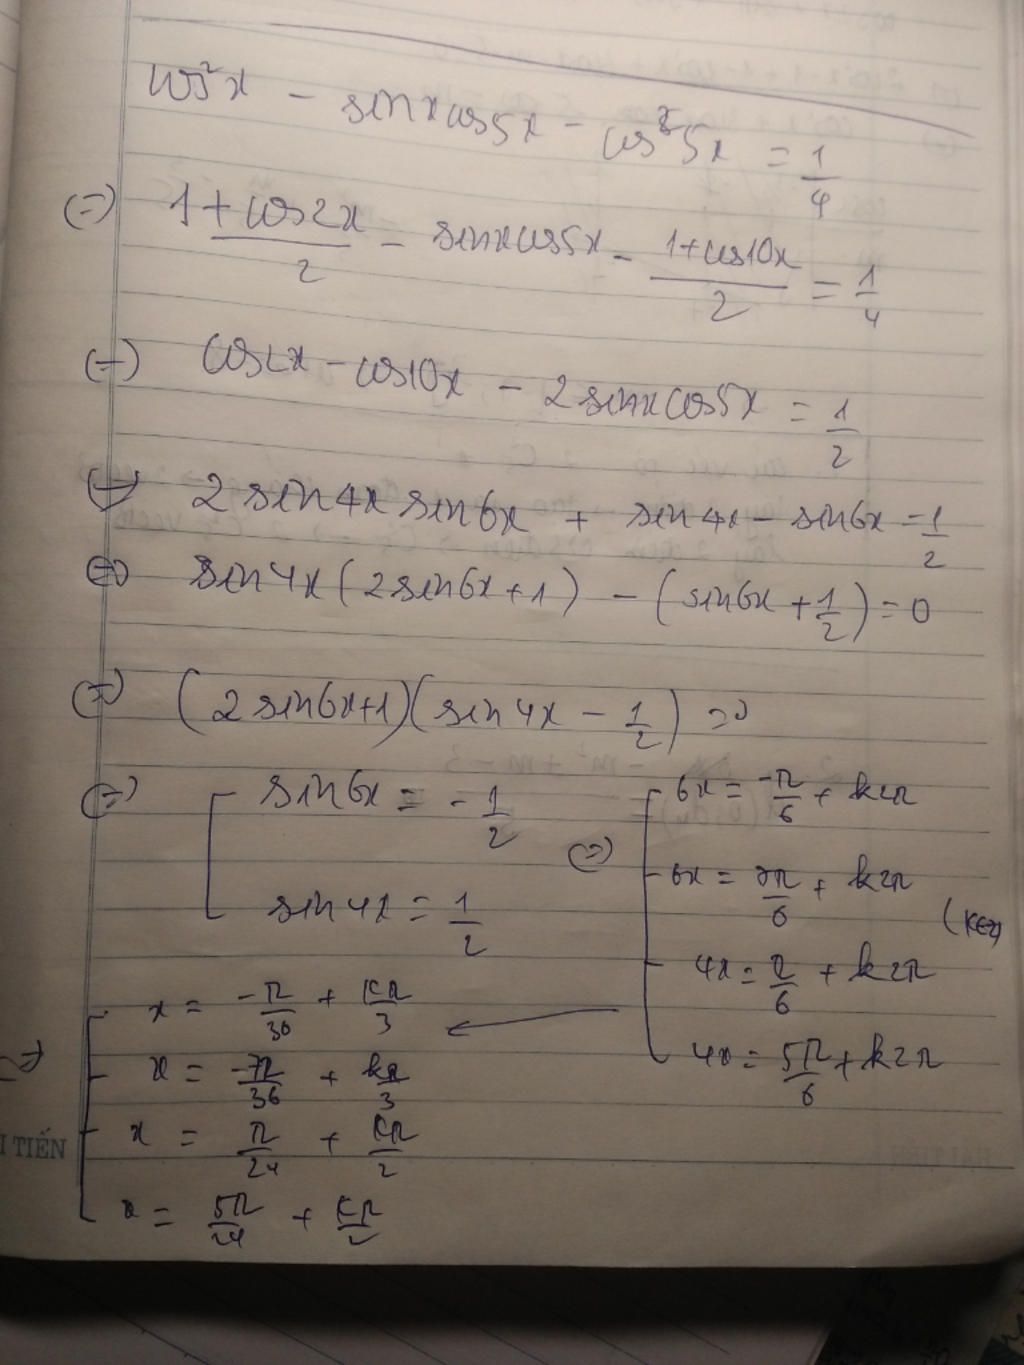 cos²x - sinxcos5x - cos²5x = 1/4
(=) (1+cos2x)/2 - sinxcos5x - (1+cos10x)/2 = 1/4
(=) cos2x - cos10x - 2sinxcos5x = 1/2
(=) 2sin4x sin6x + sin4x - sin6x = 1/2
(=) sin4x(2sin6x+1) - (sin6x + 1/2) = 0
(=) (2sin6x+1)(sin4x - 1/2) = 0
(=) [ sin6x = -1/2
sin4x = 1/2
(=) [ 6x = -π/6 + k2π
6x = 7π/6 + k2π
(k∈Z)
4x = π/6 + k2π
4x = 5π/6 + k2π
(=) [ x = -π/36 + kπ/3
x = -7π/36 + kπ/3
x = π/24 + kπ/2
x = 5π/24 + kπ/2
TIẾN